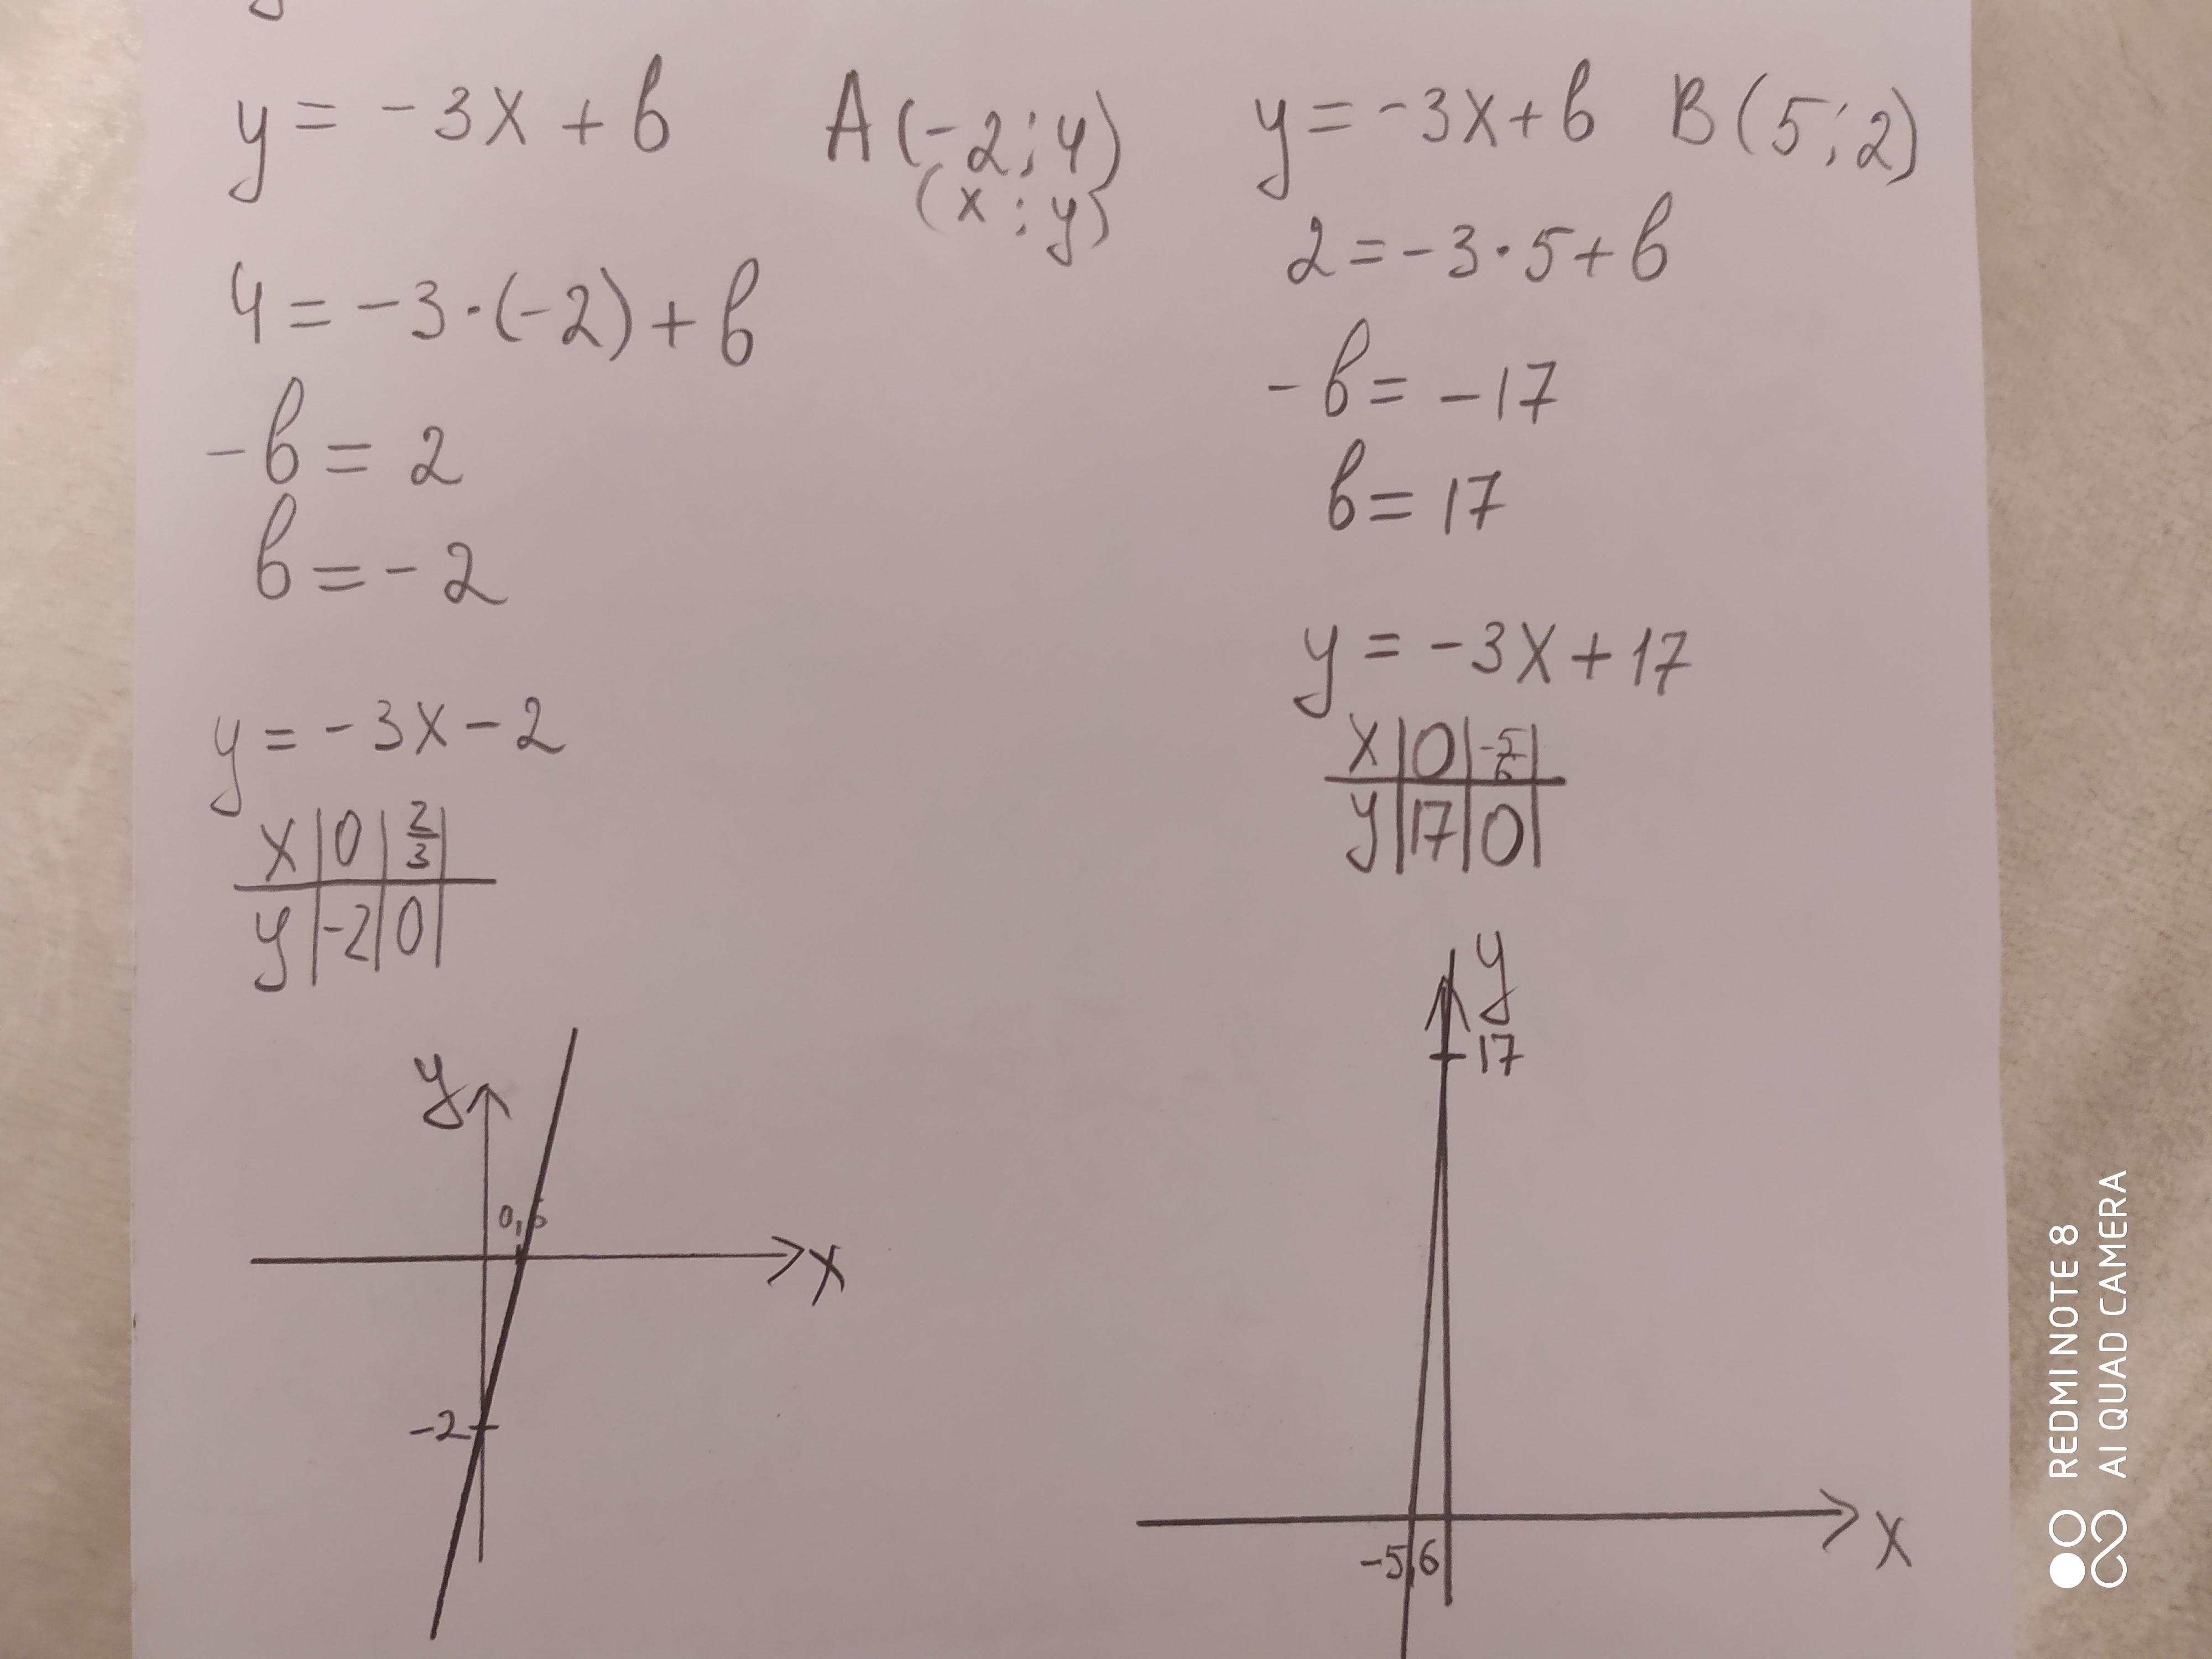 y = -3x + в A(-2; 4)
(x ; y)
4 = -3·(-2) + в
-в = 2
в = -2
y = -3x - 2
x | 0 | 2/3 |
y | -2 | 0 |
y
0,6
x
-2
y = -3x + в B(5; 2)
2 = -3·5 + в
-в = -17
в = 17
y = -3x + 17
x | 0 | |
y | 17 | 0 |
y
17
-5,6
x
REDMI NOTE 8
AI QUAD CAMERA